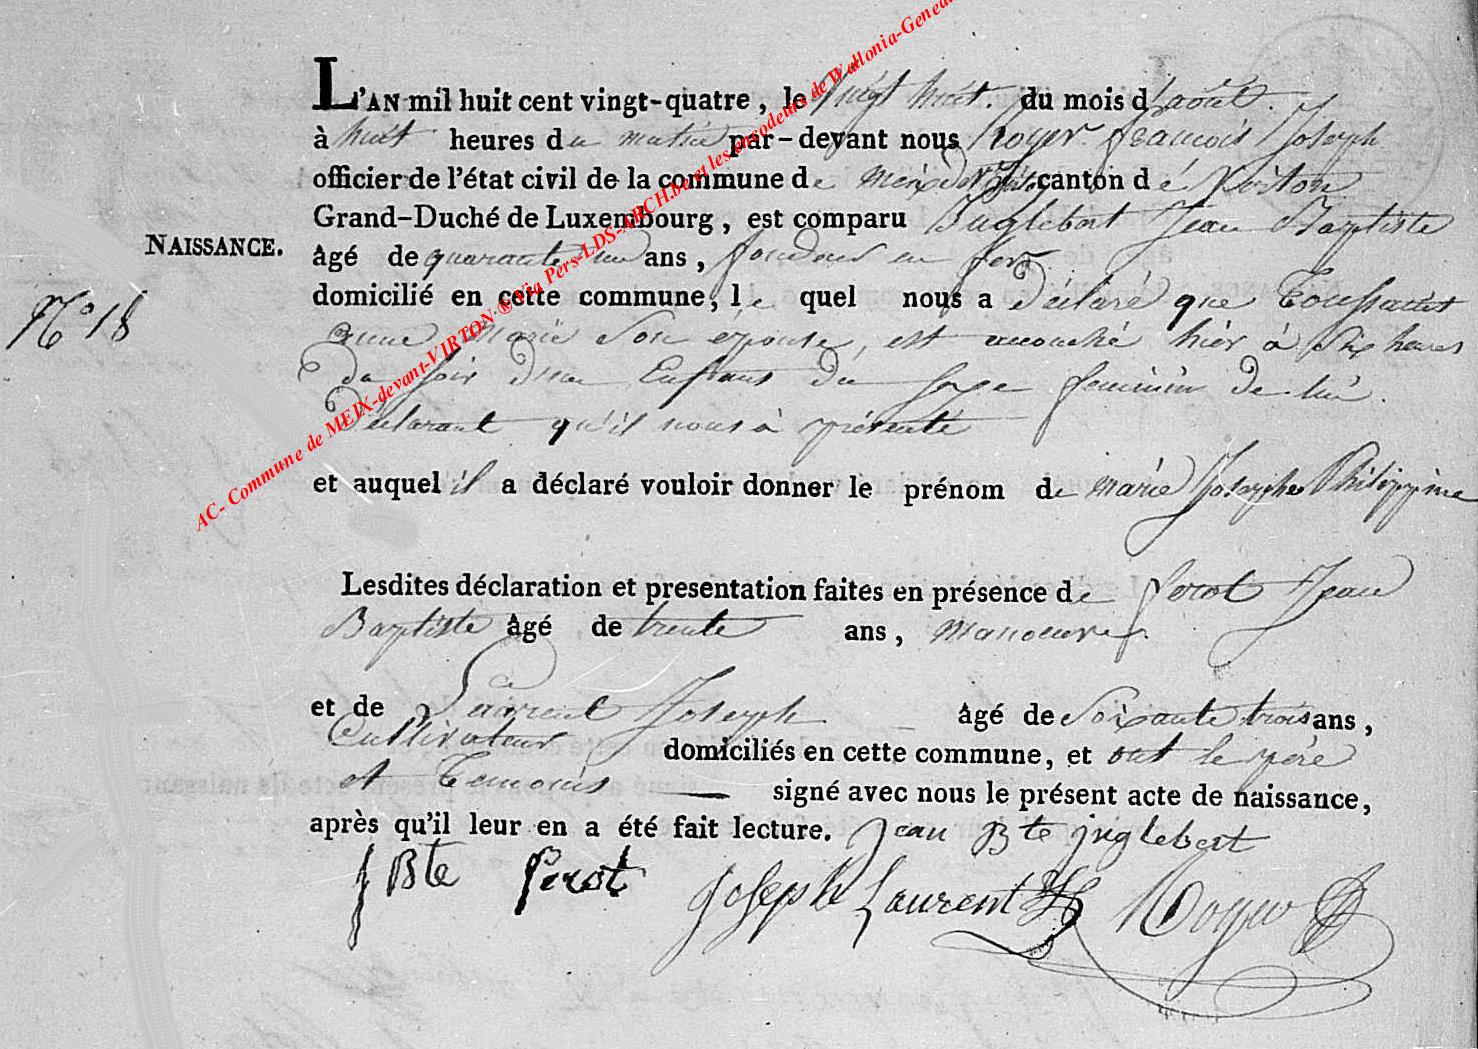 L'AN mil huit cent vingt-quatre, le vingt huit du mois d'août.
à huit heures du matin par-devant nous Royer François Joseph
officier de l'état civil de la commune de meix dt Virton canton de Virton
Grand-Duché de Luxembourg, est comparu Inglebert Jean Baptiste
NAISSANCE.
âgé de quarante un ans, fondeur en fer
N° 18
domicilié en cette commune, le quel nous a déclaré que Toussaint
anne Marie Son épouse, est accouché hier à Six heures
du Soir d'un Enfant du sexe feminin de lui
Déclarant qu'il nous à présenté
et auquel il a déclaré vouloir donner le prénom de marie Josephe Philippine
Lesdites déclaration et presentation faites en présence de perot Jean
Baptiste âgé de trente ans, manoeuvre
et de Laurent Joseph âgé de Soixante trois ans,
Cultivateur domiciliés en cette commune, et ont le père
et Temoins signé avec nous le présent acte de naissance,
après qu'il leur en a été fait lecture. Jean Bte inglebert
J Bte Perot Joseph Laurent Royer
AC- Commune de MEIX-devant-VIRTON ® Via Pers-LDS-ARCH.be et les encodeurs de Wallonia-Genea